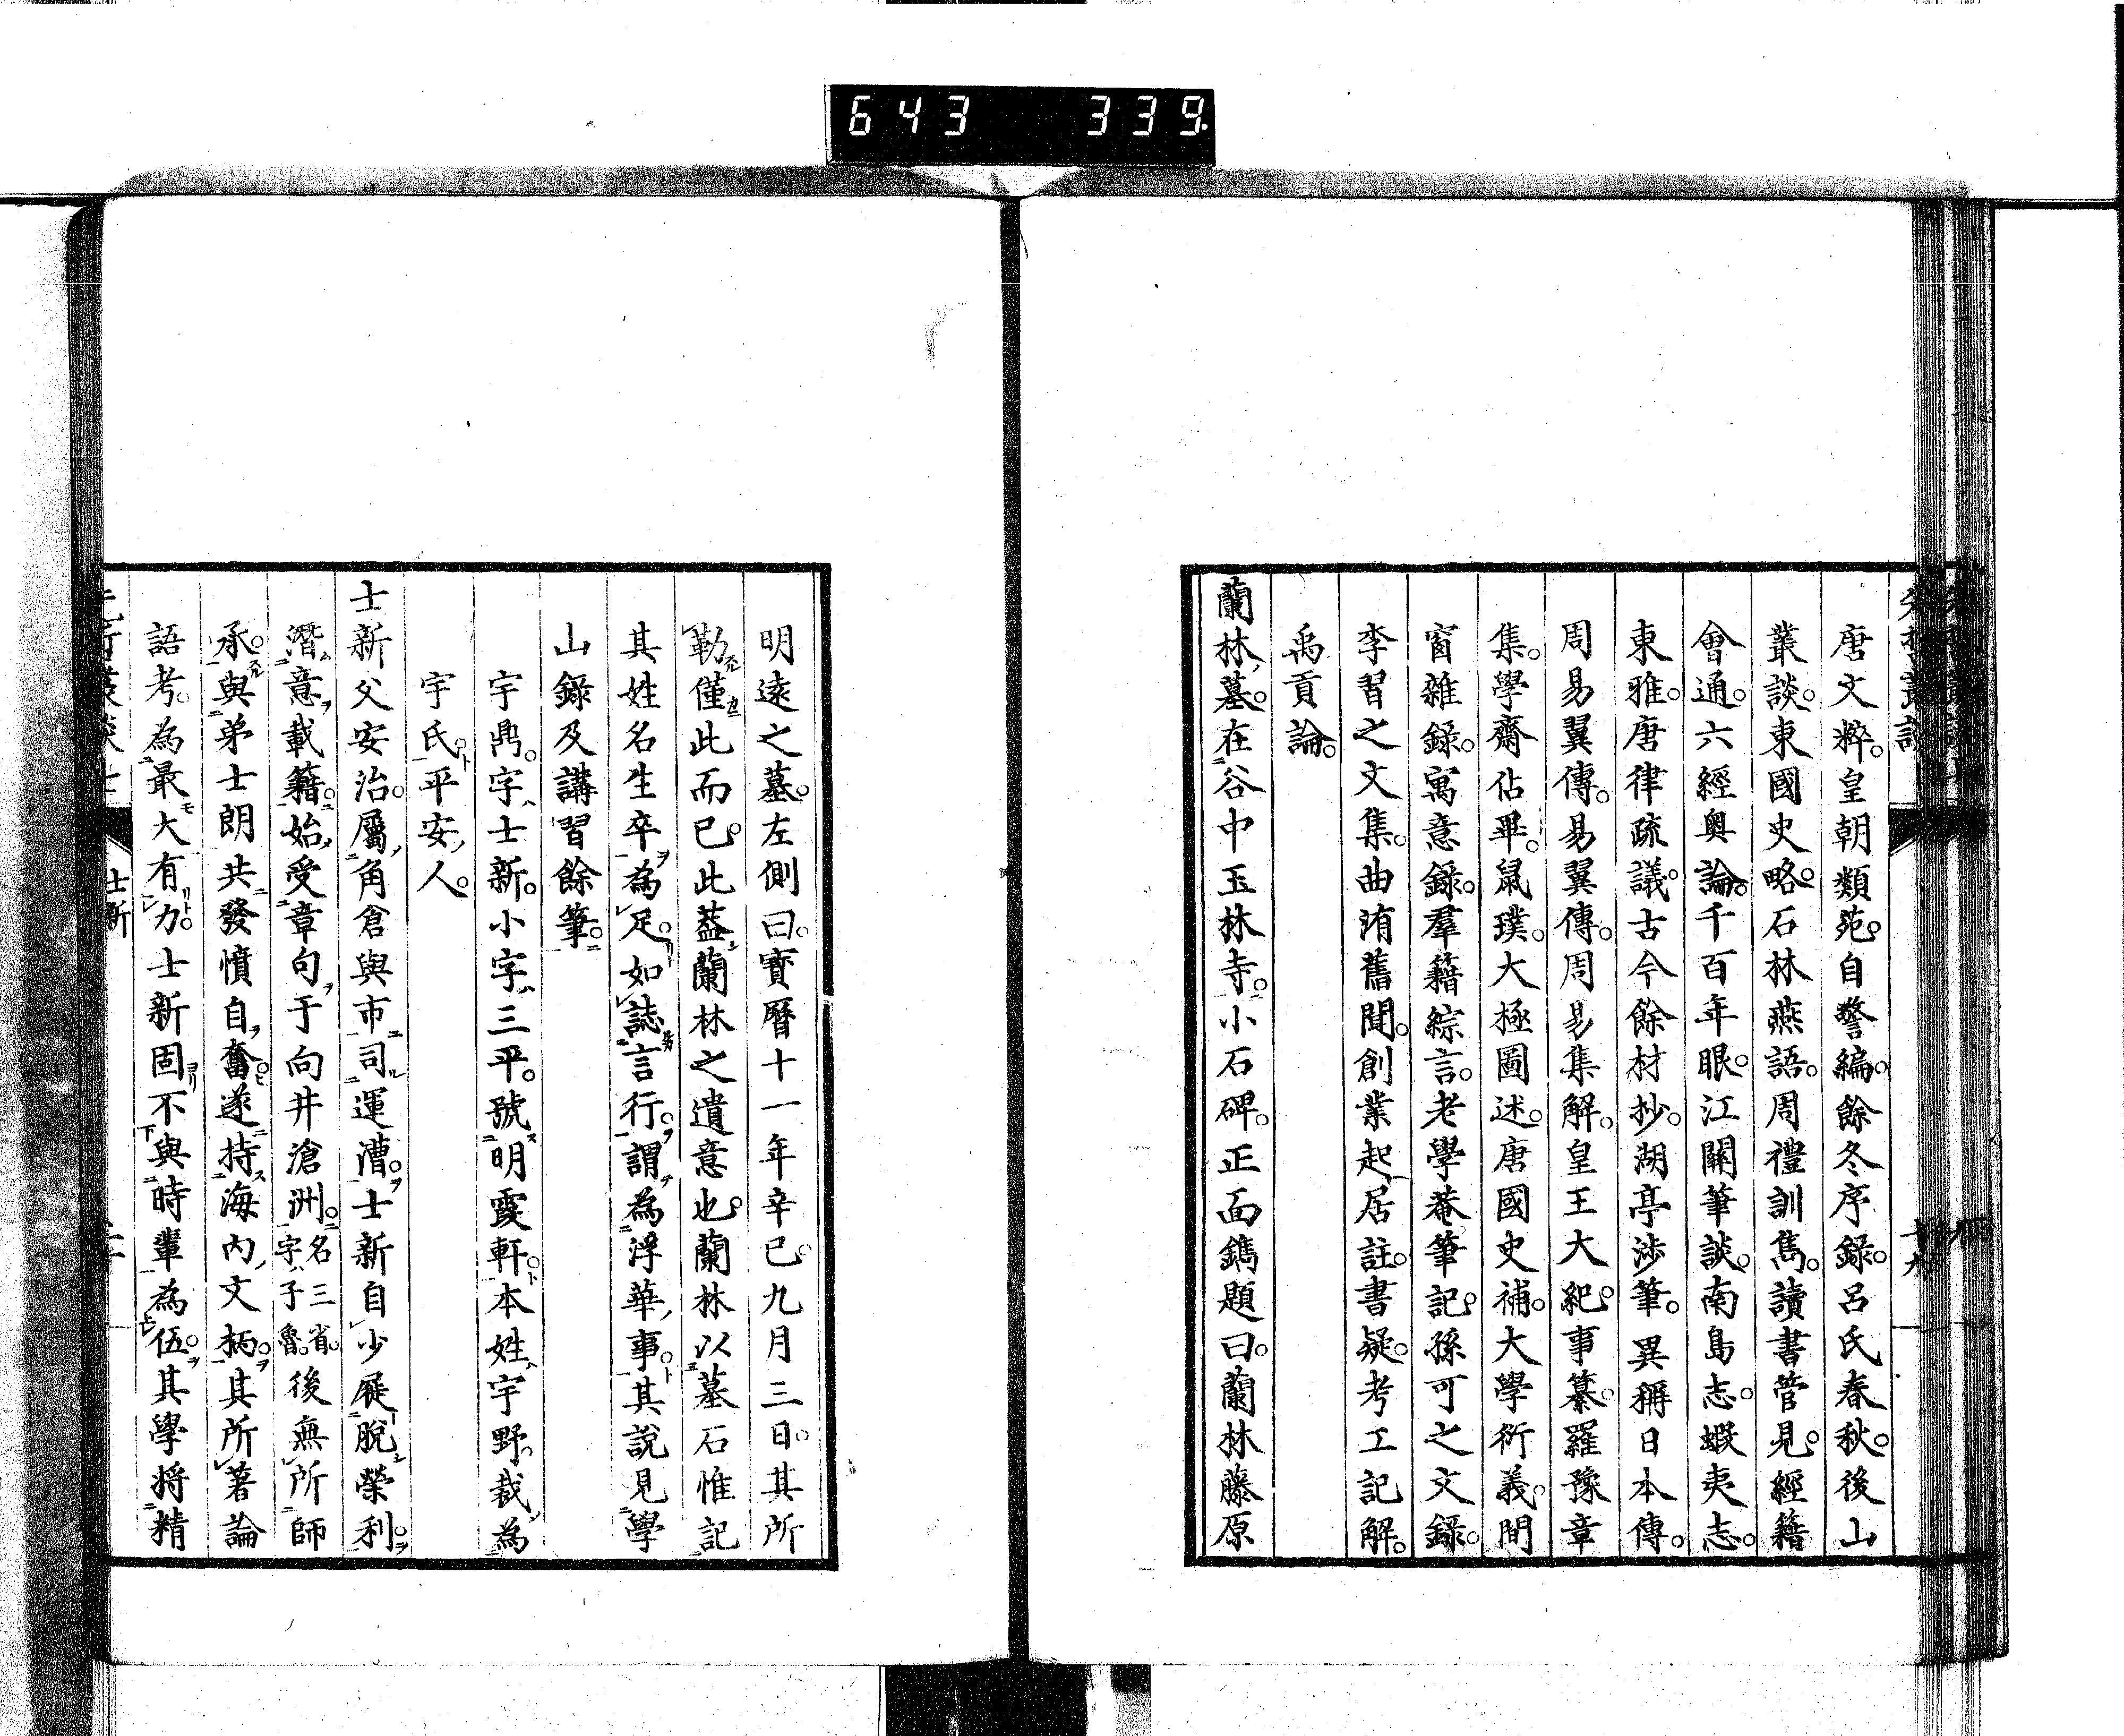 643 339
唐文粹。皇朝類苑。自警編。餘冬序錄。呂氏春秋。後山
叢談。東國史略。石林燕語。周禮訓雋。讀書管見。經籍
會通。六經奧論。千百年眼。江關筆談。南島志。蝦夷志。
東雅。唐律疏議。古今餘材抄。湖亭涉筆。異稱日本傳。
周易翼傳。易翼傳。周易集解。皇王大紀。事纂。羅豫章
集。學齋佔畢。鼠璞。大極圖述。唐國史補。大學衍義。閒
窗雜錄。寓意錄。羣籍綜言。老學菴筆記。孫可之文錄。
李習之文集。曲洧舊聞。創業起居註。書疑。考工記解。
禹貢論。
蘭林墓。在谷中玉林寺。小石碑。正面鐫題曰。蘭林藤原
明遠之墓。左側曰。寶曆十一年辛巳。九月三日。其所
勒僅此而已。此葢蘭林之遺意也。蘭林以墓石惟記
其姓名生卒為足。如誌言行。謂為浮華事。其說見學
山錄及講習餘筆。
宇鼎。字士新。小字三平。號明霞軒。本姓宇野。裁為
宇氏。平安人。
士新父安治。屬角倉與市。司運漕。士新自少屣脫榮利。
潛意載籍。始受章句于向井滄洲。名三省。字子魯。後無所師
承。與弟士朗共發憤自奮。遂持海內文柄。其所著論
語考。為最大有力。士新固不與時輩為伍。其學將精
士新